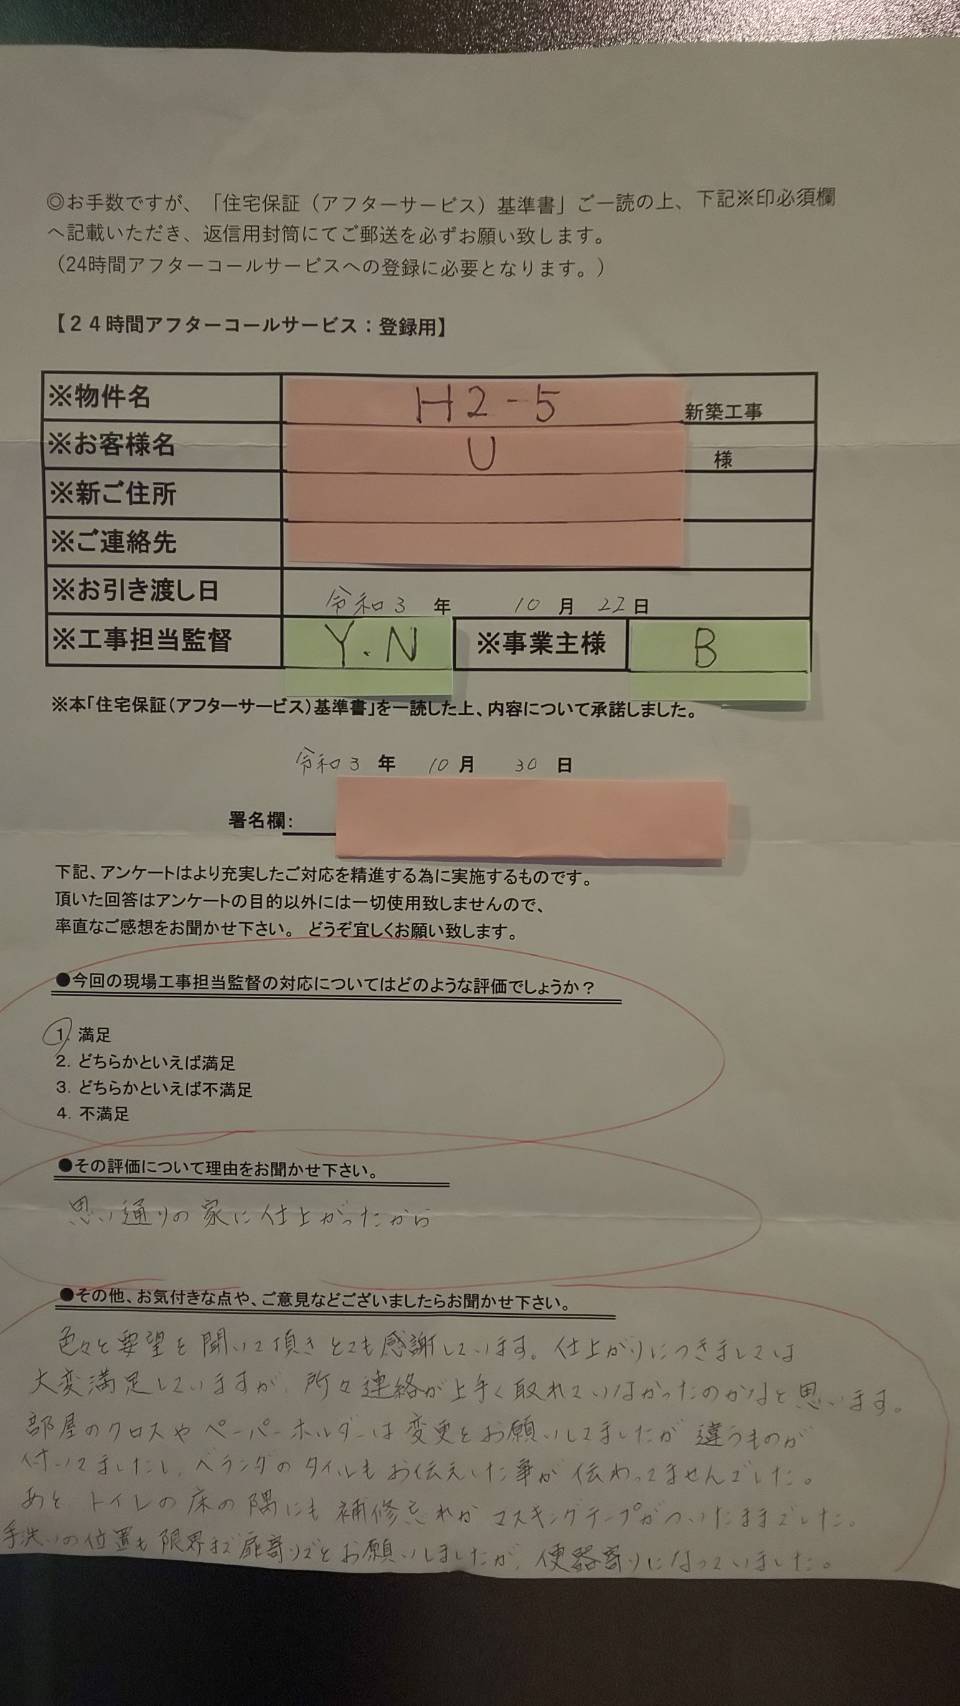 ◎お手数ですが、「住宅保証（アフターサービス）基準書」ご一読の上、下記※印必須欄
へ記載いただき、返信用封筒にてご郵送を必ずお願い致します。
（24時間アフターコールサービスへの登録に必要となります。）
【２４時間アフターコールサービス：登録用】
※物件名 H2-5 新築工事
※お客様名 U 様
※新ご住所
※ご連絡先
※お引き渡し日 令和3 年 10 月 22 日
※工事担当監督 Y.N ※事業主様 B
※本「住宅保証（アフターサービス）基準書」を一読した上、内容について承諾しました。
令和3 年 10 月 30 日
署名欄：
下記、アンケートはより充実したご対応を精進する為に実施するものです。
頂いた回答はアンケートの目的以外には一切使用致しませんので、
率直なご感想をお聞かせ下さい。 どうぞ宜しくお願い致します。
●今回の現場工事担当監督の対応についてはどのような評価でしょうか？
1. 満足
2. どちらかといえば満足
3. どちらかといえば不満足
4. 不満足
●その評価について理由をお聞かせ下さい。
思い通りの家に仕上がったから
●その他、お気付きな点や、ご意見などございましたらお聞かせ下さい。
色々と要望を聞いて頂きとても感謝しています。仕上がりにつきましては
大変満足していますが、所々連絡が上手く取れていなかったのかなと思います。
部屋のクロスやペーパーホルダーは変更とお願いしてましたが違うものが
付いてましたし、ベランダのタイルもお伝えした事が伝わってませんでした。
あと、トイレの床の隅にも補修忘れかマスキングテープがついたままでした。
手洗いの位置も限界まで扉寄りでとお願いしましたが、便器寄りになっていました。